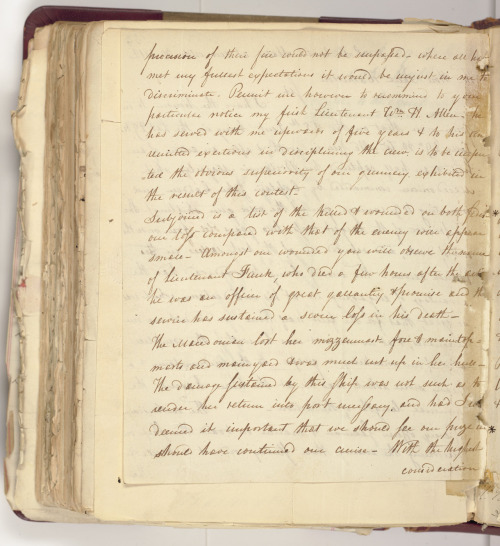 precision of their fire could not be surpassed - where all
met my fullest expectations it would be unjust in me to
discriminate. Permit me however to recommend to your
particular notice my first Lieutenant Wm. H Allen, he
has served with me upwards of five years & to his un
remitted exertions in disciplining the crew, is to be impu
ted the obvious superiority of our gunnery exhibited in
the result of this contest.
Subjoined is a list of the killed & wounded on both
our loss compared with that of the enemy will appear
small - Amongst our wounded you will observe the name
of Lieutenant Funk, who died a few hours after the
he was an officer of great gallantry & promise and the
service has sustained a severe loss in his death -
The Macedonian lost her mizzenmast fore & maintop-
masts and mainyard & was much cut up in her hull -
The damage sustained by this Ship was not such as to
render her return into port necessary, and had I
deemed it important that we should see our prize in
should have continued our cruise - With the highest
consideration